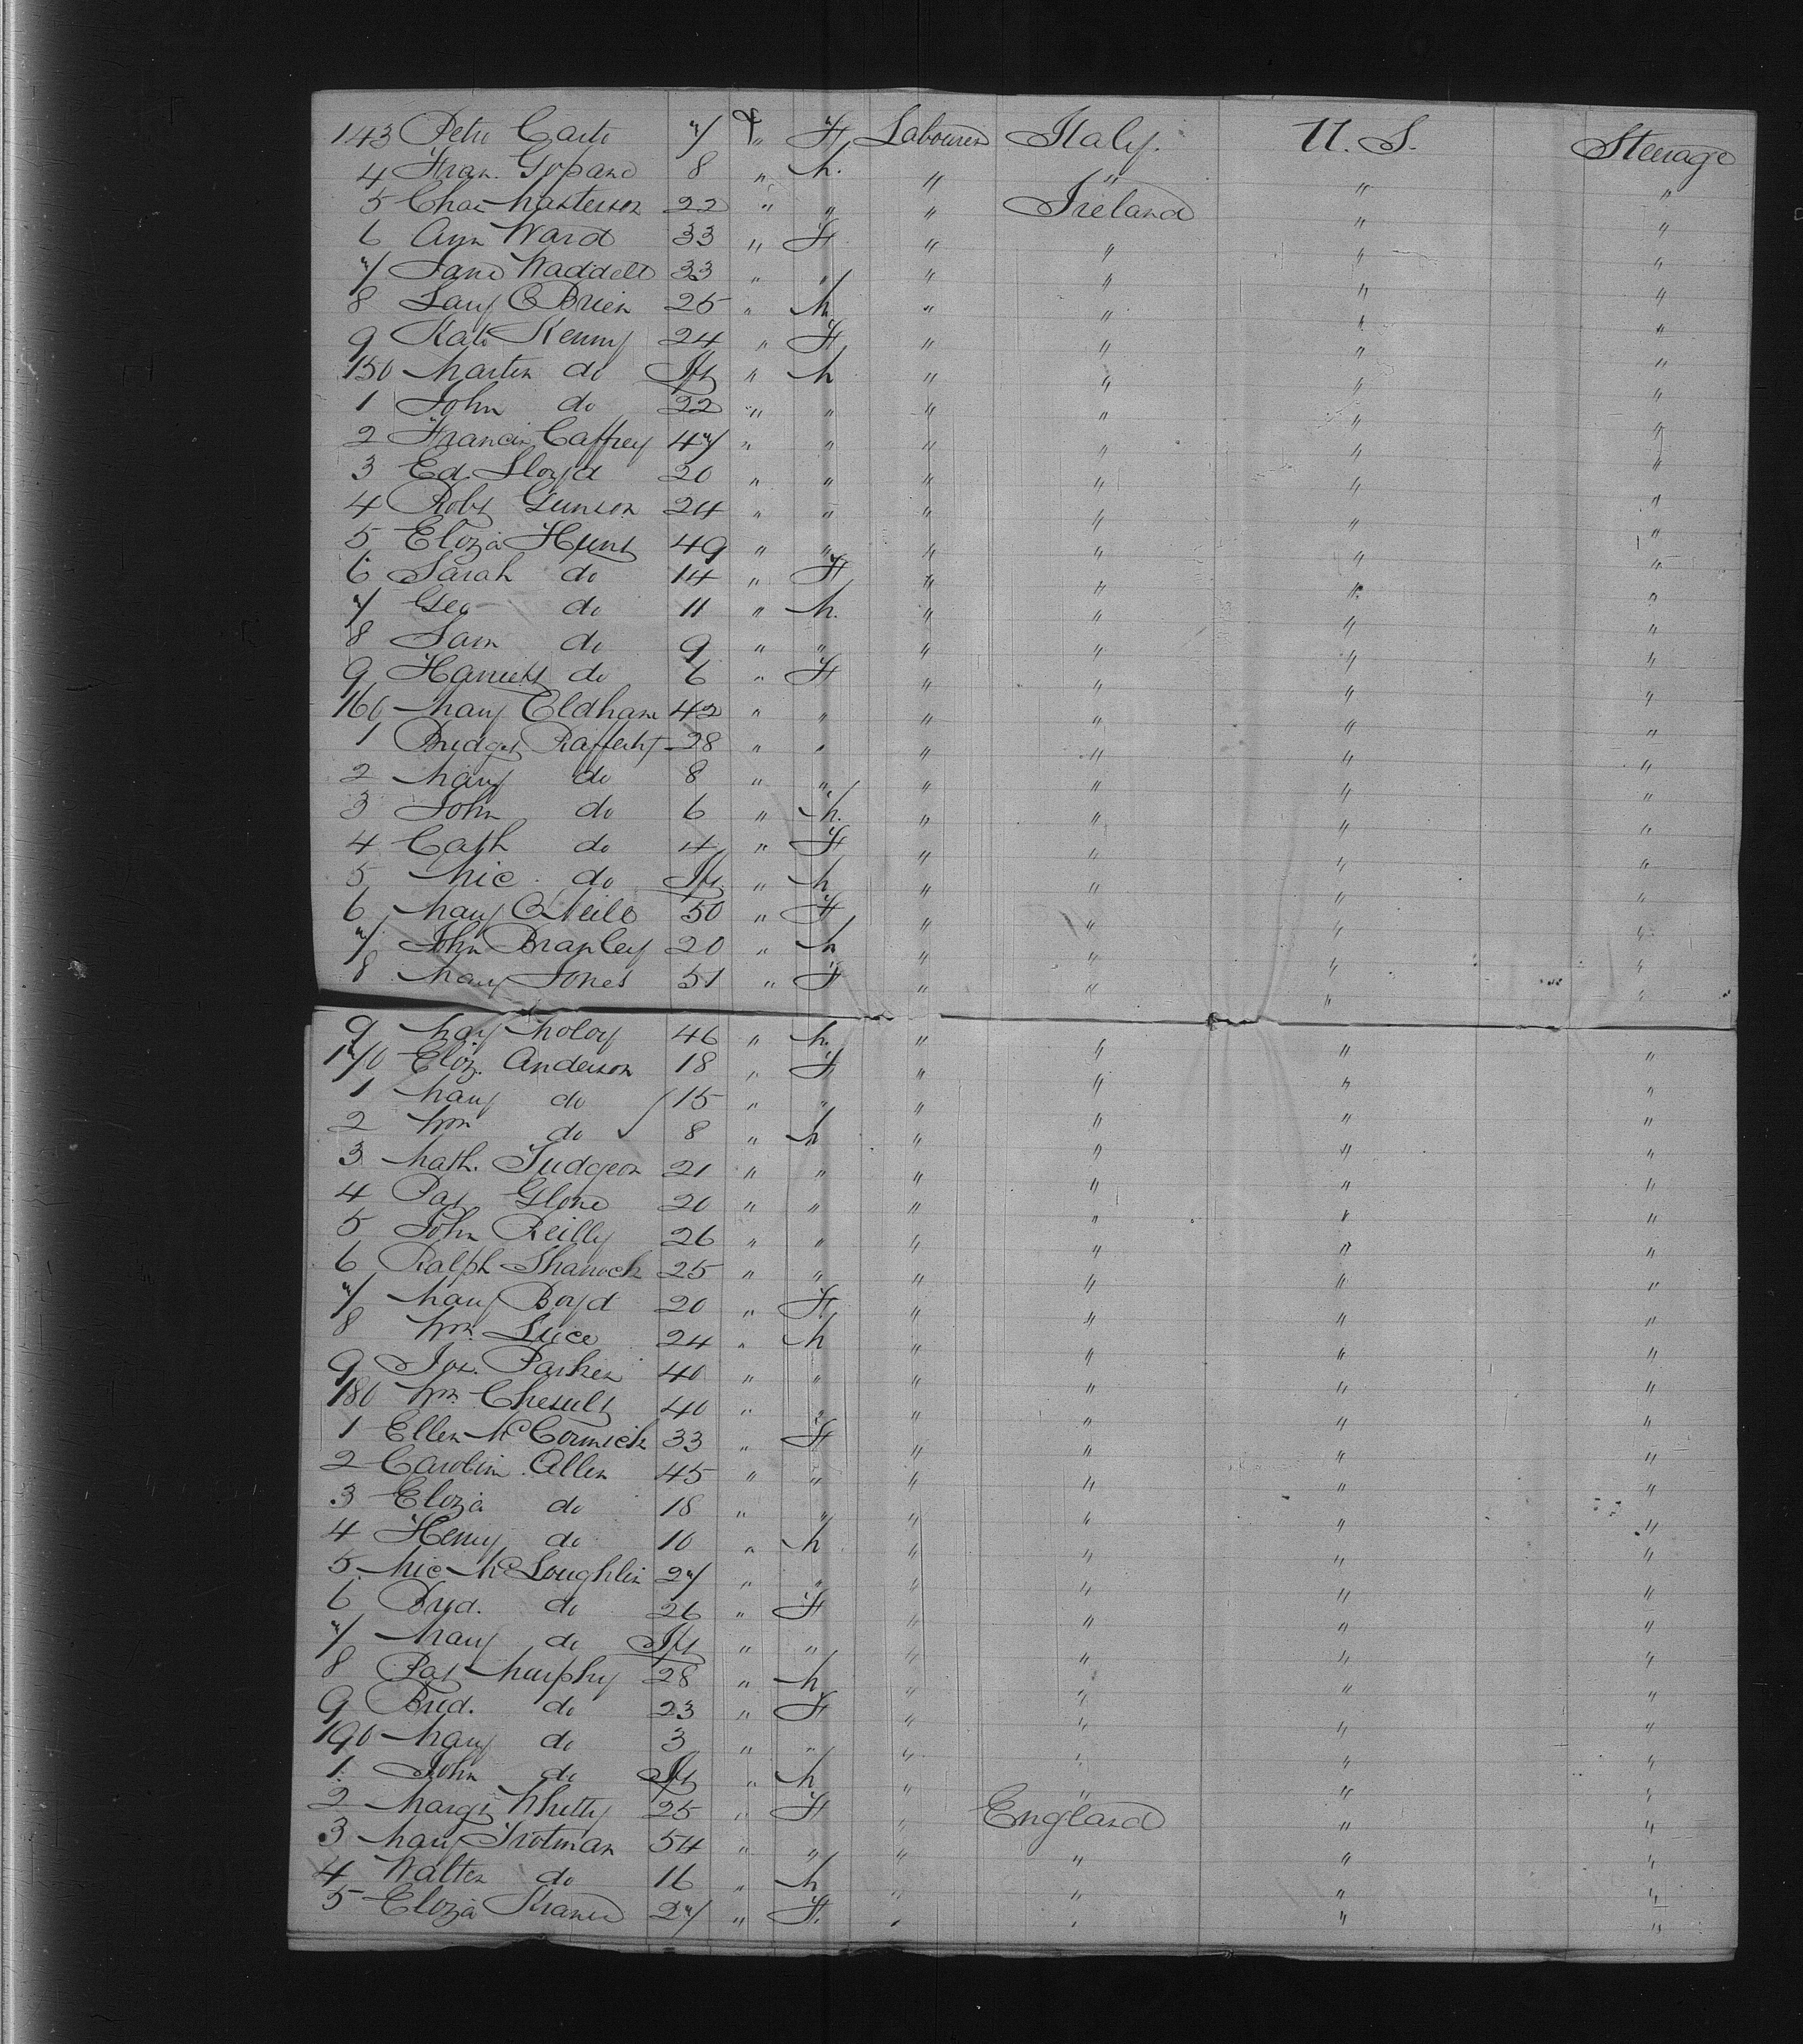 143 Petro Carlo 7 Y " F Labourer Italy. U. S. Steerage
4 Fran. Gopano 8 " M. " " " "
5 Chas Masterson 22 " " " Ireland " "
6 Ann Ward 33 " F " " " "
7 Jane Waddell 33 " " " " " "
8 Lauy O'Brien 25 " M " " " "
9 Kate Kenny 24 " F " " " "
150 Martin do Inft " M " " " "
1 John do 22 " " " " " "
2 Francis Caffrey 47 " " " " " "
3 Ed Lloyd 20 " " " " " "
4 Robt Gunson 24 " " " " " "
5 Eliza Hunt 49 " " " " " "
6 Sarah do 14 " F " " " "
7 Geo do 11 " M. " " " "
8 Sam do 9 " " " " " "
9 Harriett do 6 " F " " " "
160 Mary Eldham 42 " " " " " "
1 Bridget Rafferty 28 " " " " " "
2 Mary do 8 " " " " " "
3 John do 6 " M. " " " "
4 Cath do 4 " F " " " "
5 Mic. do Inft " M " " " "
6 Mary O'Neile 50 " F " " " "
7 John Brapley 20 " M " " " "
8 Mary Jones 51 " F " " " "
9 May Moloy 46 " M. " " " "
170 Eliz. Anderson 18 " F " " " "
1 Mary do 15 " " " " " "
2 Wm do 8 " M " " " "
3 Math. Judgeon 21 " " " " " "
4 Pat Glone 20 " " " " " "
5 John Reilly 26 " " " " " "
6 Ralph Sharrock 25 " " " " " "
7 Mary Boyd 20 " F " " " "
8 Wm Luce 24 " M " " " "
9 Jos. Parker 40 " " " " " "
180 Wm Chesult 40 " " " " " "
1 Ellen McCormick 33 " F " " " "
2 Carolin Allen 45 " " " " " "
3 Eliza do 18 " " " " " "
4 Henry do 10 " M " " " "
5 Mic McLoughlin 27 " " " " " "
6 Brid. do 26 " F " " " "
7 Mary do Inft " " " " " "
8 Pat Murphy 28 " M " " " "
9 Brid. do 23 " F " " " "
190 Mary do 3 " " " " " "
1 John do Inft " M " " " "
2 Margt Whitty 25 " F " England " "
3 Mary Trotman 54 " " " " " "
4 Walter do 16 " M " " " "
5 Eliza 27 " F. " " " "